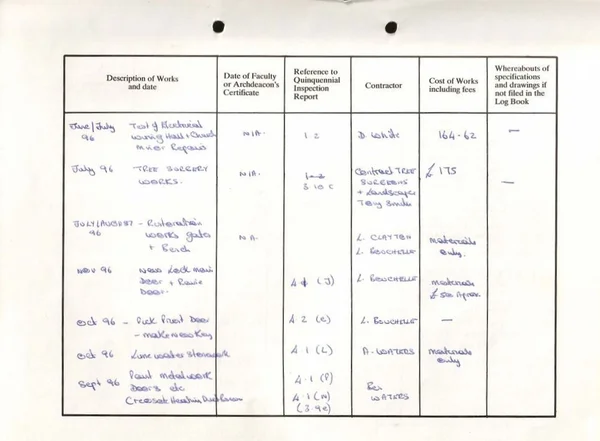 Description of Works
and date
Date of Faculty
or Archdeacon's
Certificate
Reference to
Quinquennial
Inspection
Report
Contractor
Cost of Works
including fees
Whereabouts of
specifications
and drawings if
not filed in the
Log Book
June/July 96 Test of Electrical N/A. 1 2 D. White 164-62 —
wiring Hall + Church
Minor Repairs
July 96 TREE SURGERY N/A. Contract TREE £ 175 —
WORKS. 3 10 c SURGEONS
+ Landscape
Tony Smith
JULY/AUGUST 96 - Restoration
works gates N A. L. CLAYTON materials
+ Bench L. BOUCHELLE only.
NOV 96 New Lock Main 4 1 (J) L. BOUCHELLE materials
Door +
Door. £ 50 Aprox.
Oct 96 - Front Door 4 2 (e) L. BOUCHELLE —
- make New Key
Oct 96 Lime water Stonework 4 1 (L) A. WATERS materials
only
Sept 96 Paint Metalwork 4.1 (P)
Doors etc 4.1 (N) WATERS
(3.9e)